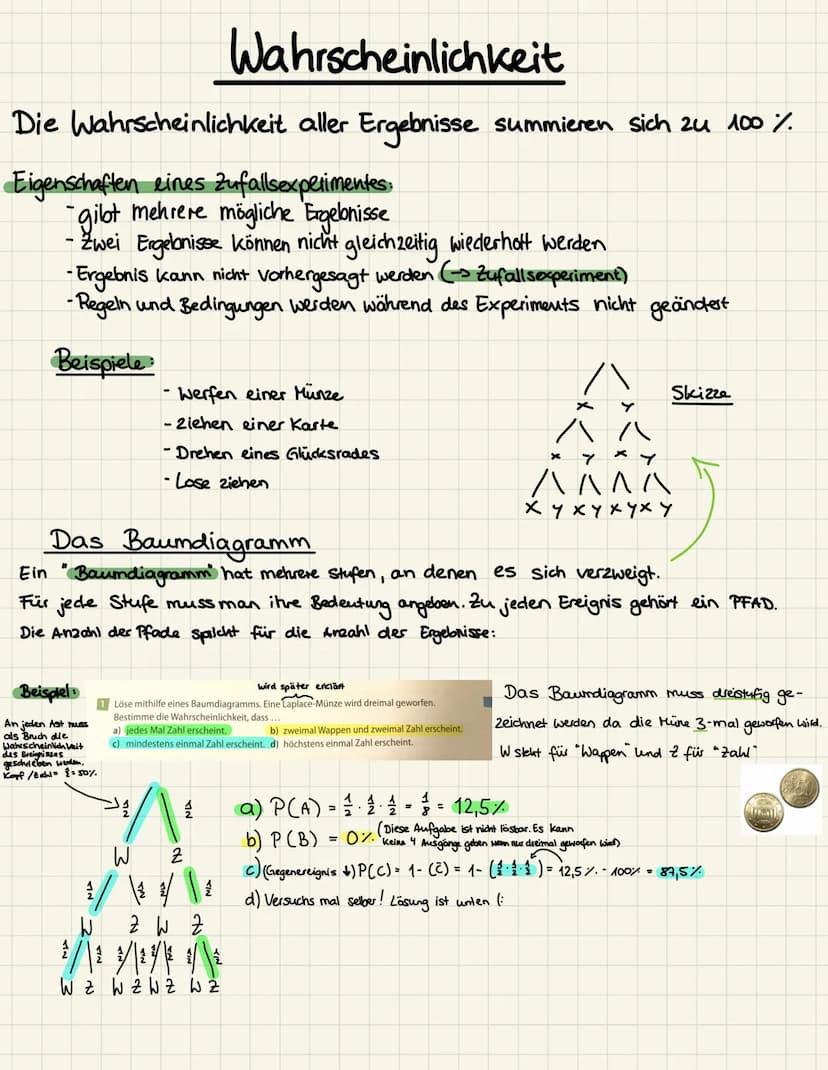 Wahrscheinlichkeit
Die Wahrscheinlichkeit aller Ergebnisse summieren sich zu 100 %.
Eigenschaften eines Zufallsexperimentes:
- gibt mehrere mögliche Ergebnisse
- Zwei Ergebnisse können nicht gleichzeitig wiederholt werden
- Ergebnis kann nicht vorhergesagt werden (→ Zufallsexperiment)
- Regeln und Bedingungen werden während des Experiments nicht geändert
Beispiele:
- Werfen einer Münze
- Ziehen einer Karte
- Drehen eines Glücksrades
- Lose ziehen
Skizze
x y
x y x y
x y x y x y x y
Das Baumdiagramm
Ein "Baumdiagramm" hat mehrere Stufen, an denen es sich verzweigt.
Für jede Stufe muss man ihre Bedeutung angeben. Zu jeden Ereignis gehört ein PFAD.
Die Anzahl der Pfade spicht für die Anzahl der Ergebnisse:
Beispiel:
wird später erklärt
1 Löse mithilfe eines Baumdiagramms. Eine Laplace-Münze wird dreimal geworfen.
Bestimme die Wahrscheinlichkeit, dass ...
a) jedes Mal Zahl erscheint. b) zweimal Wappen und zweimal Zahl erscheint.
c) mindestens einmal Zahl erscheint. d) höchstens einmal Zahl erscheint.
Das Baumdiagramm muss dreistufig ge-
zeichnet werden da die Müne 3-mal geworfen wird.
W steht für "Wappen" und Z für "Zahl"
An jeden Ast muss
als Bruch die
Wahrscheinlichkeit
des Ereignisses
geschrieben werden.
Kopf / Zahl = ½ = 50%.
a) P(A) = ½ · ½ · ½ = ⅛ = 12,5%
b) P(B) = 0% (Diese Aufgabe ist nicht lösbar. Es kann
keine 4 Ausgänge geben wenn nur dreimal geworfen wird)
c) (Gegenereignis ↓) P(C) = 1 - (C̄) = 1 - (½ · ½ · ½) = 12,5 %. - 100% = 87,5%
d) Versuchs mal selber! Lösung ist unten (:
½ ½
W Z
½ ½ ½ ½
W Z W Z
½ ½ ½ ½ ½ ½ ½
W Z W Z W Z W Z